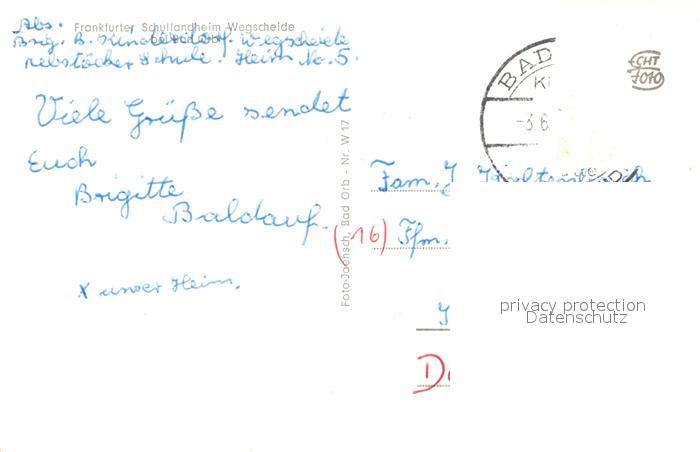 Frankfurter Schullandheim Wegscheide
bei Bad Orb
Abs.
Brig. B. Kinderdorf. Wegscheide
Heim No. 5.
Viele Grüße sendet
Euch
Brigitte
Baldauf.
x unser Heim.
Foto-Jaensch, Bad Orb - Nr. W 17
BAD
-3.6
ECHT
FOTO
Fam. J
(16) Ffm.
privacy protection
Datenschutz